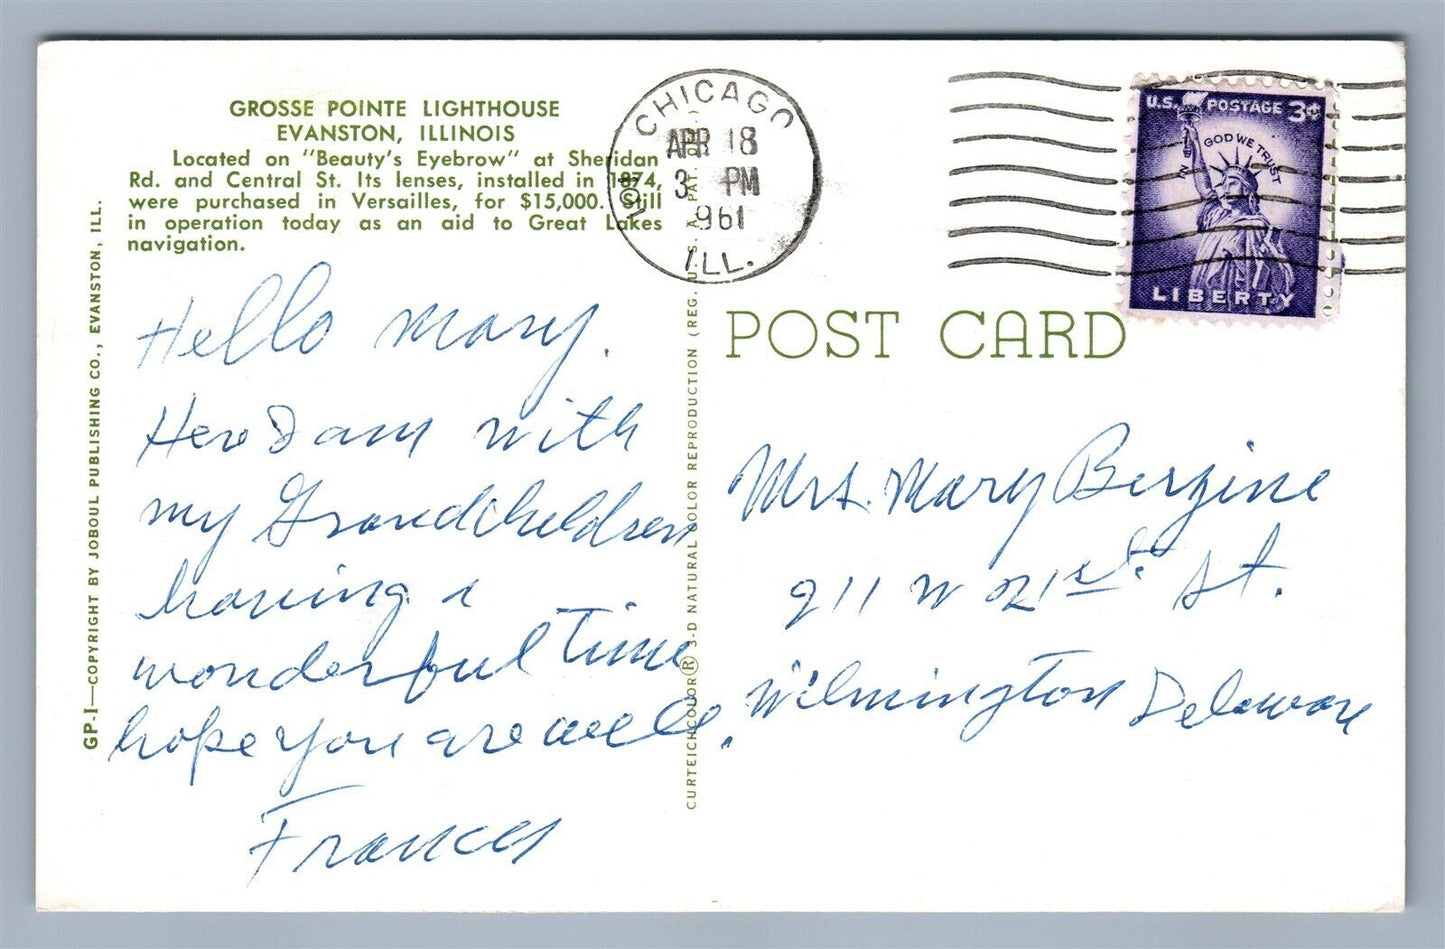 GROSSE POINTE LIGHTHOUSE
EVANSTON, ILLINOIS
Located on "Beauty's Eyebrow" at Sheridan
Rd. and Central St. Its lenses, installed in 1874,
were purchased in Versailles, for $15,000. Still
in operation today as an aid to Great Lakes
navigation.
GP-I—COPYRIGHT BY JOBOUL PUBLISHING CO., EVANSTON, ILL.
Hello Mary.
Here I am with
my Grandchildren
having a
wonderful Time
hope you are well.
Frances
CURTEICHCOLOR® 3-D NATURAL COLOR REPRODUCTION (REG. U.S.A. PAT. OFF.)
CHICAGO
APR 18
3 PM
1961
ILL.
U.S. POSTAGE 3¢
IN GOD WE TRUST
LIBERTY
POST CARD
Mrs. Mary Berzine
911 W 21st. St.
Wilmington Delaware